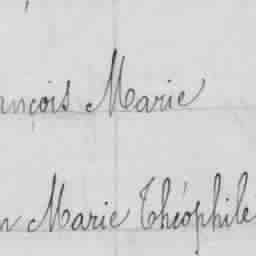 ançois Marie
n Marie Théophile